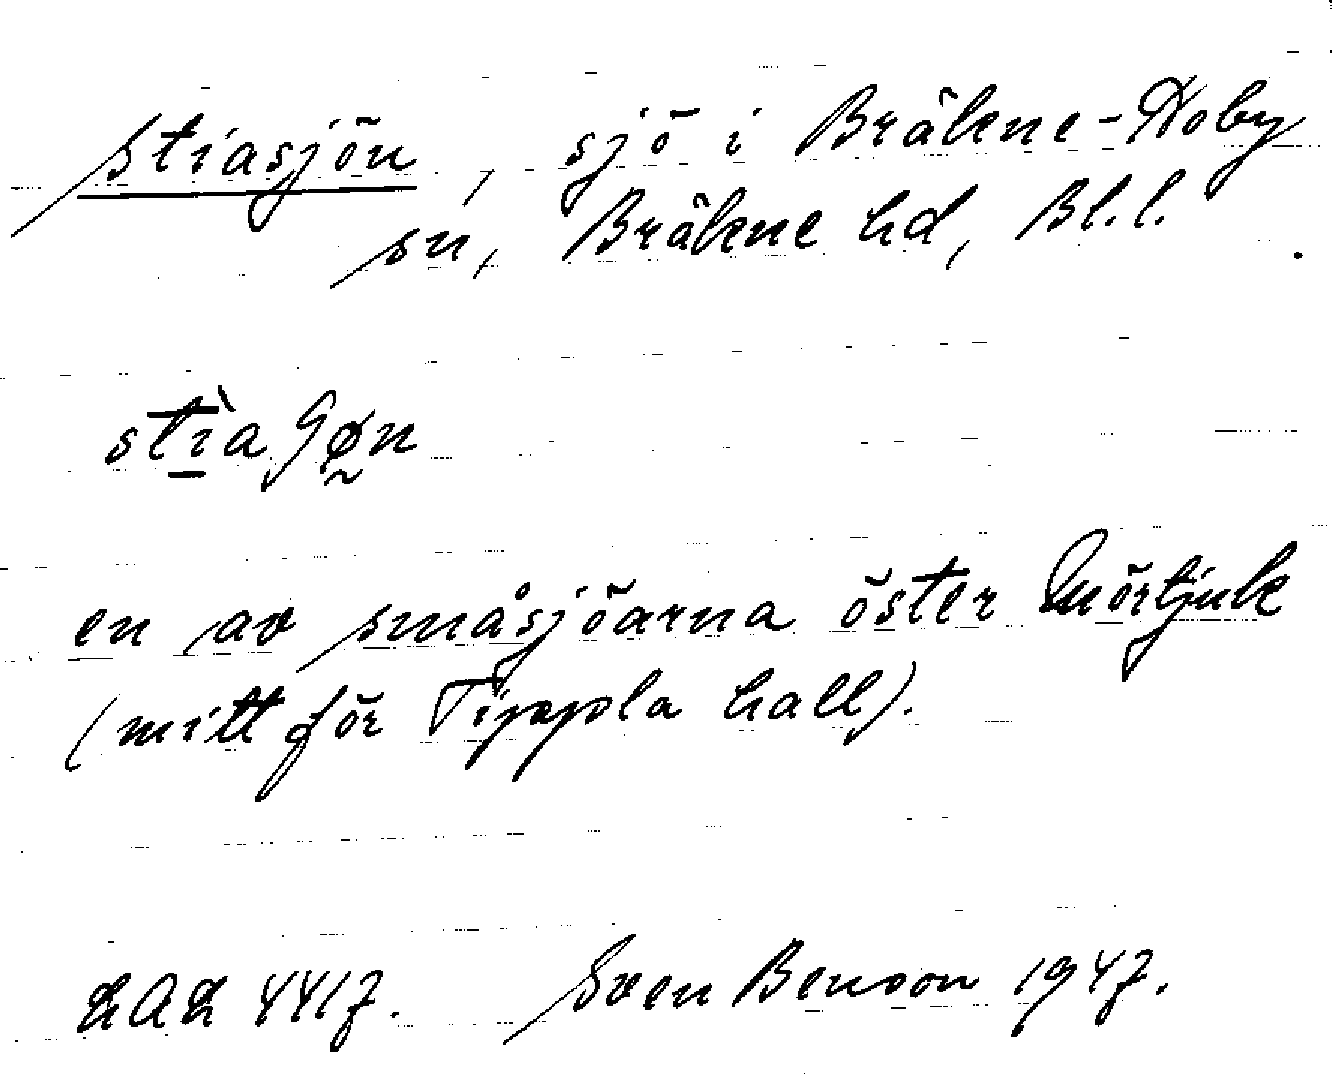 Stiasjön, sjö i Bräkne-Hoby
sn, Bräkne hd, Bl.l.
en av småsjöarna öster Mörtjuk
(mitt för Tippla hall).
LAL 4417. Sven Benson 1947.